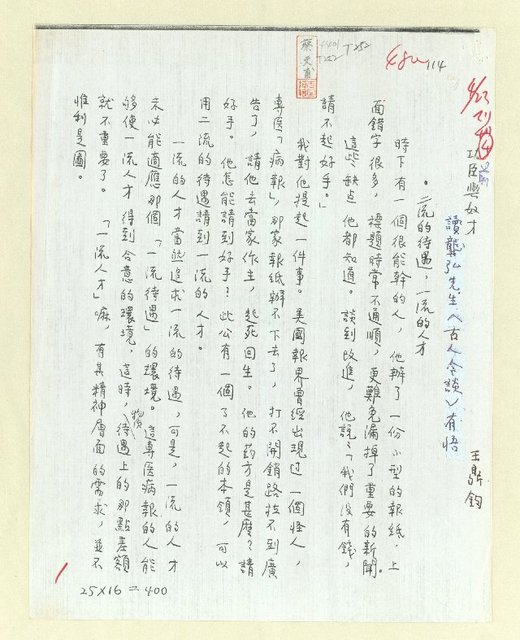 功臣與奴才
讀龔弘先生《古人今談》有悟
王鼎鈞
。二流的待遇,一流的人才
時下有一個很能幹的人,他辦了一份小型的報紙,上
面錯字很多,標題時常不通順,更難免漏掉了重要的新聞。
這些缺点他都知道。談到改進,他說:「我們沒有錢,
請不起好手。」
我對他提起一件事。美國報界曾經出現过一個怪人,
專医「病報」,那家報紙辦不下去了,打不開銷路拉不到廣
告了,請他去當家作主,起死回生。他的葯方是甚麼?請
好手。他怎能請到好手?此公有一個了不起的本領,可以
用二流的待遇請到一流的人才。
一流的人才當然追求一流的待遇,可是,一流的人才
未必能適應那個「一流待遇」的環境。這專医病報的人能
够使一流人才得到合意的環境,這時,物質待遇上的那點差額
就不重要了。「一流人才」嘛,有其精神層面的需求,並不
惟利是圖。
25×16=400
114
T252
蔡文甫